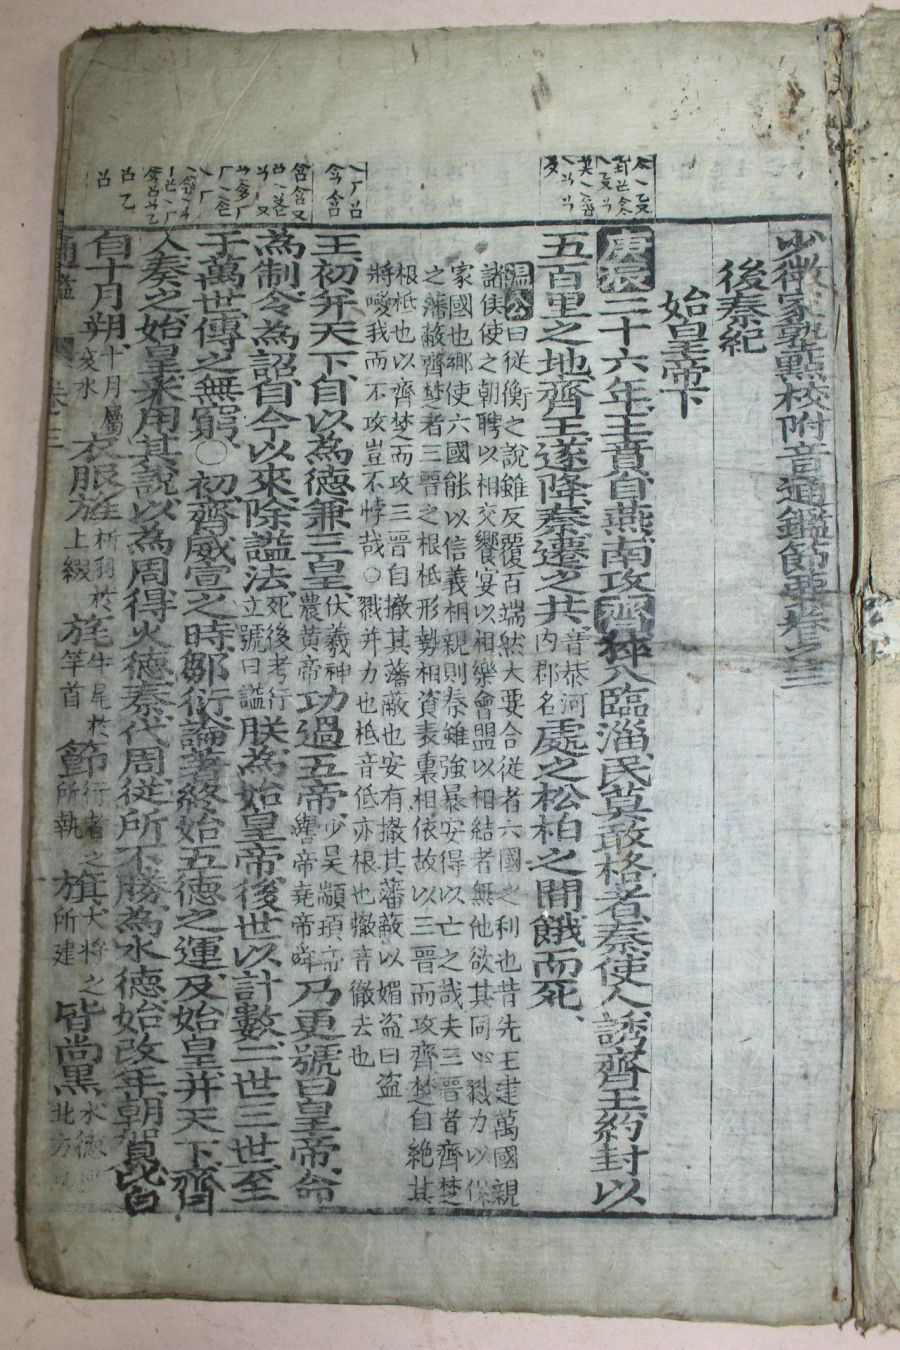 少微家塾點校附音通鑑節要卷之三
後秦紀
始皇帝下
庚辰二十六年王賁自燕南攻齊猝入臨淄民莫敢格者秦使人誘齊王約封以
五百里之地齊王遂降秦遷之共音恭河內郡名處之松柏之間餓而死
溫公曰從衡之說雖反覆百端然大要合從者六國之利也昔先王建萬國親
諸侯使之朝聘以相交饗宴以相樂會盟以相結者無他欲其同心戮力以保
家國也鄉使六國能以信義相親則秦雖強暴安得以亡之哉夫三晉者齊楚
之藩蔽齊楚者三晉之根柢形勢相資表裏相依故以三晉而攻齊楚自絕其
根柢也以齊楚而攻三晉自撤其藩蔽也安有撤其藩蔽以媚盜曰盜
將愛我而不攻豈不悖哉○戮并力也柢音低亦根也撤音徹去也
王初并天下自以為德兼三皇伏羲神農黃帝功過五帝少昊顓頊帝嚳帝堯帝舜乃更號曰皇帝命
為制令為詔自今以來除謚法死後考行立號曰謚朕為始皇帝後世以計數二世三世至
于萬世傳之無窮○初齊威宣之時鄒衍論著終始五德之運及始皇并天下齊
人奏之始皇采用其說以為周得火德秦代周從所不勝為水德始改年朝賀皆
自十月朔十月屬亥水衣服旌析羽於上綴旄牛尾於竿首節行者之所執旗大將之所建皆尚黑水德北方
通鑑 卷之三